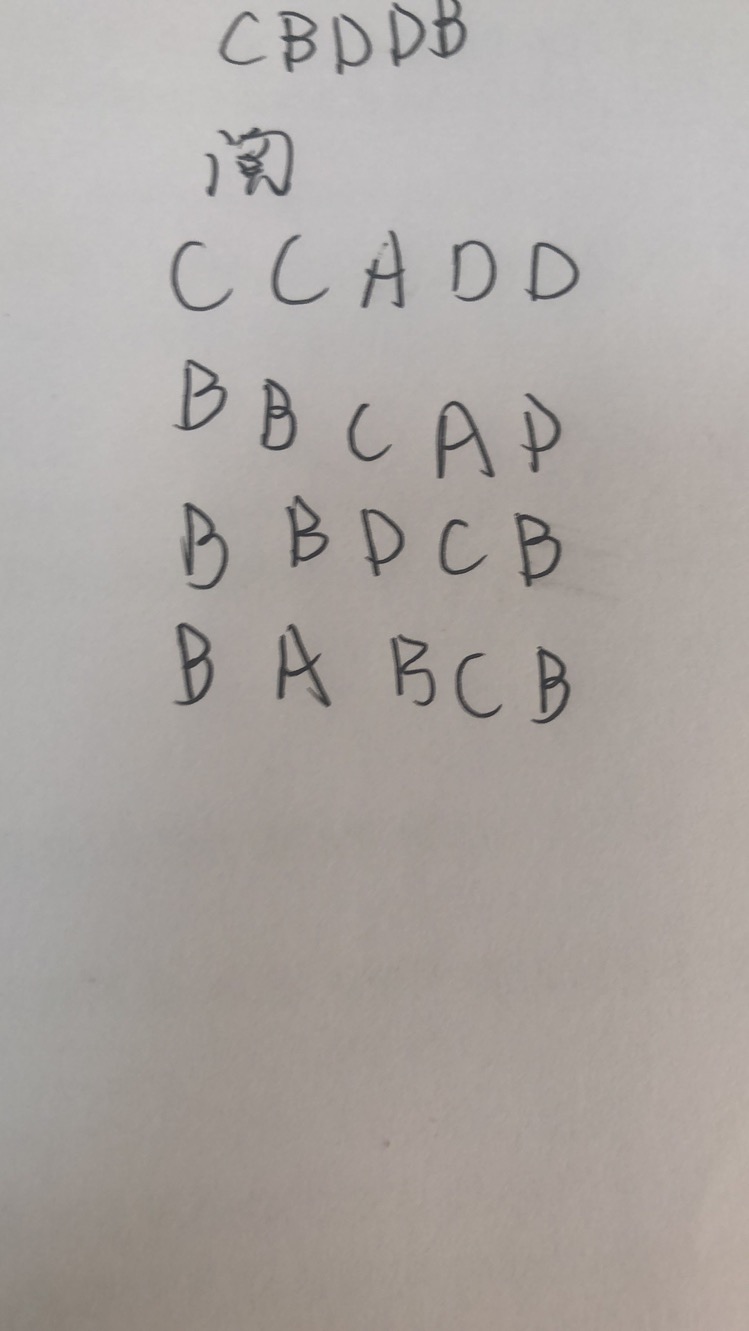 CBDDB
阅
C C A D D
B B C A D
B B D C B
B A B C B